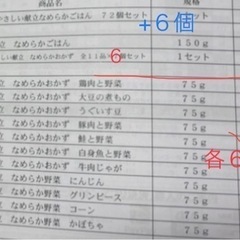 商品名 規格
さしい献立なめらかごはん 72個セット +6個
立 なめらかごはん 150g
しい献立 なめらかおかず 全11品 6 セット 1セット
立 なめらかおかず 鶏肉と野菜 75g
立 なめらかおかず 大豆の煮もの 75g
立 なめらかおかず うぐいす豆 75g
立 なめらかおかず 豚肉と野菜 75g
立 なめらかおかず 鮭と野菜 75g
立 なめらかおかず 白身魚と野菜 75g
立 なめらかおかず 牛肉じゃが 75g
各6
立 なめらか野菜 にんじん 75g
立 なめらか野菜 グリンピース 75g
立 なめらか野菜 コーン 75g
立 なめらか野菜 かぼちゃ 75g